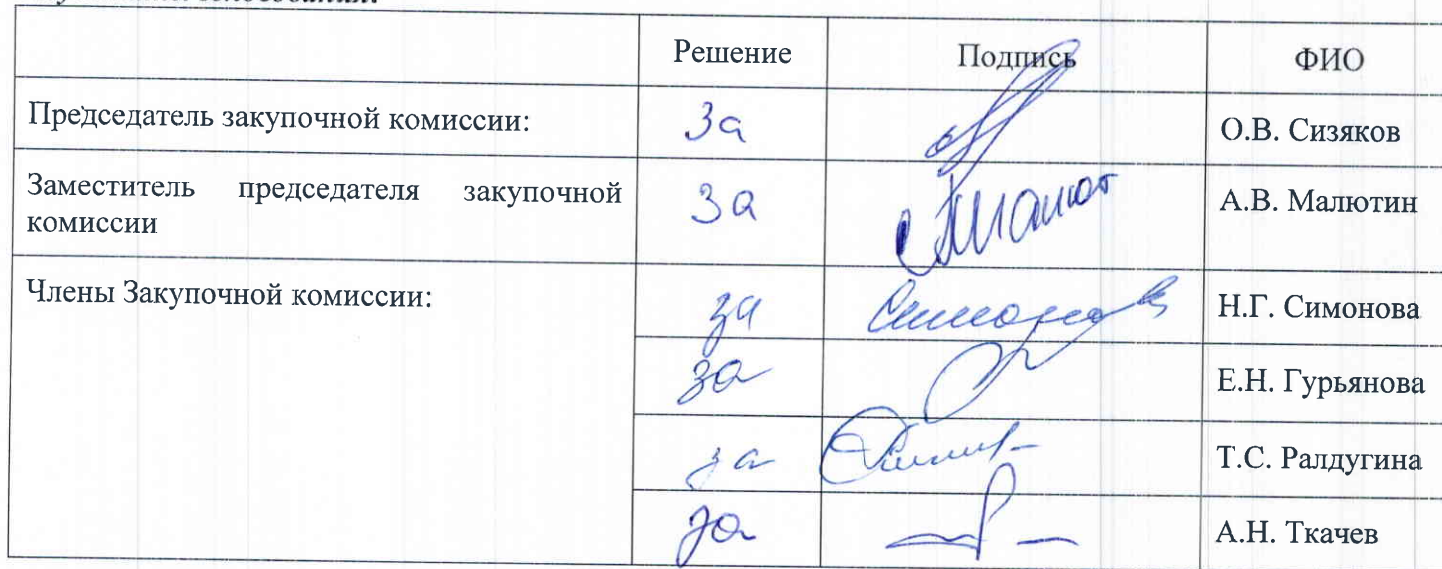 голосования:
Решение Подпись ФИО
Председатель закупочной комиссии: За О.В. Сизяков
Заместитель председателя закупочной
комиссии За А.В. Малютин
Члены Закупочной комиссии: за Н.Г. Симонова
за Е.Н. Гурьянова
за Т.С. Ралдугина
за А.Н. Ткачев